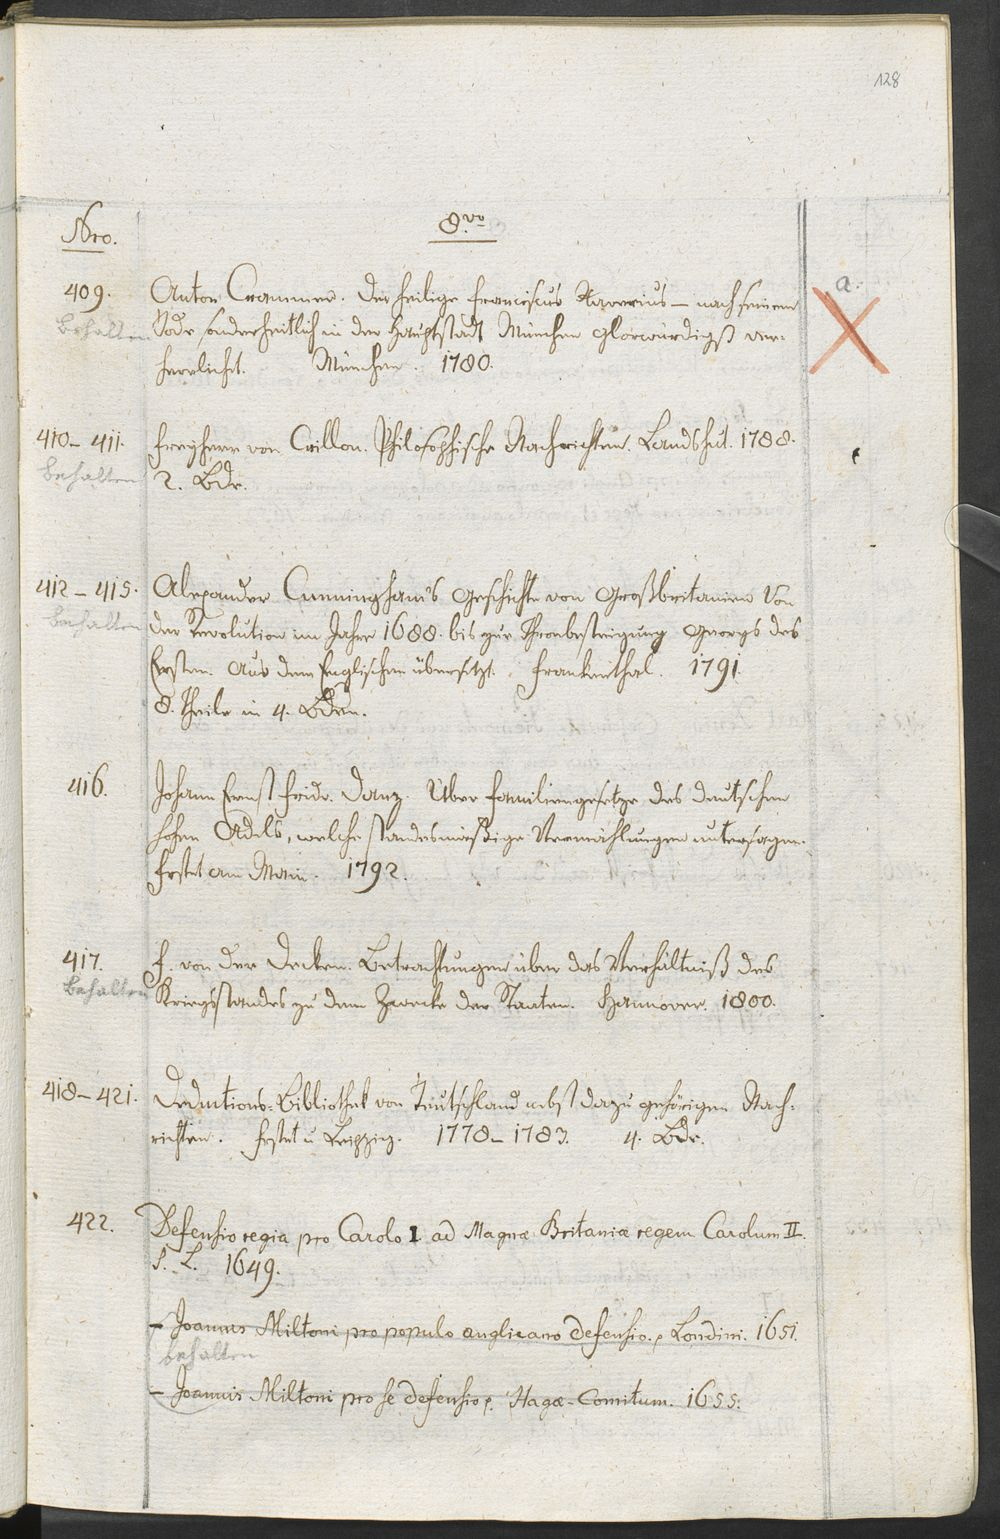 128
Nro.
8.vo
a.
409. Anton Crammer. Der heilige Franciscus Xaverius – nach seinem
behalten Tode sonderheitlich in der Hauptstadt München glorwürdigst ver-
herrlichet. München. 1780.
410–411. Freyherr von Crillon. Philosophische Nachrichten. Landshut. 1788.
behalten 2. Bde.
412–415. Alexander Cunninghams Geschichte von Großbritanien Von
behalten der Revolution im Jahre 1688. bis zur Thronbesteigung Georgs des
Ersten. Aus dem Englischen übersetzt. Frankenthal. 1791.
8. Theile in 4. Bden.
416. Johann Ernst Fridr. Danz. Über Familiengesetze des deutschen
hohen Adels, welche standesmäßige Vermählungen untersagen.
Frft am Main. 1792.
417. F. von der Decken. Betrachtungen über das Verhältniß des
behalten Kriegsstandes zu dem Zwecke der Staaten. Hannover. 1800.
418–421. Deductions-Bibliothek von Teutschland nebst dazu gehörigen Nach-
richten. Frft u Leipzig. 1778–1783. 4. Bde.
422. Defensio regia pro Carolo I ad Magnæ Britaniæ regem Carolum II.
S. L. 1649.
– Joannis Miltoni pro populo anglicano defensio. Londini. 1651.
behalten
– Joannis Miltoni pro se defensio. Hagæ-Comitum. 1655.